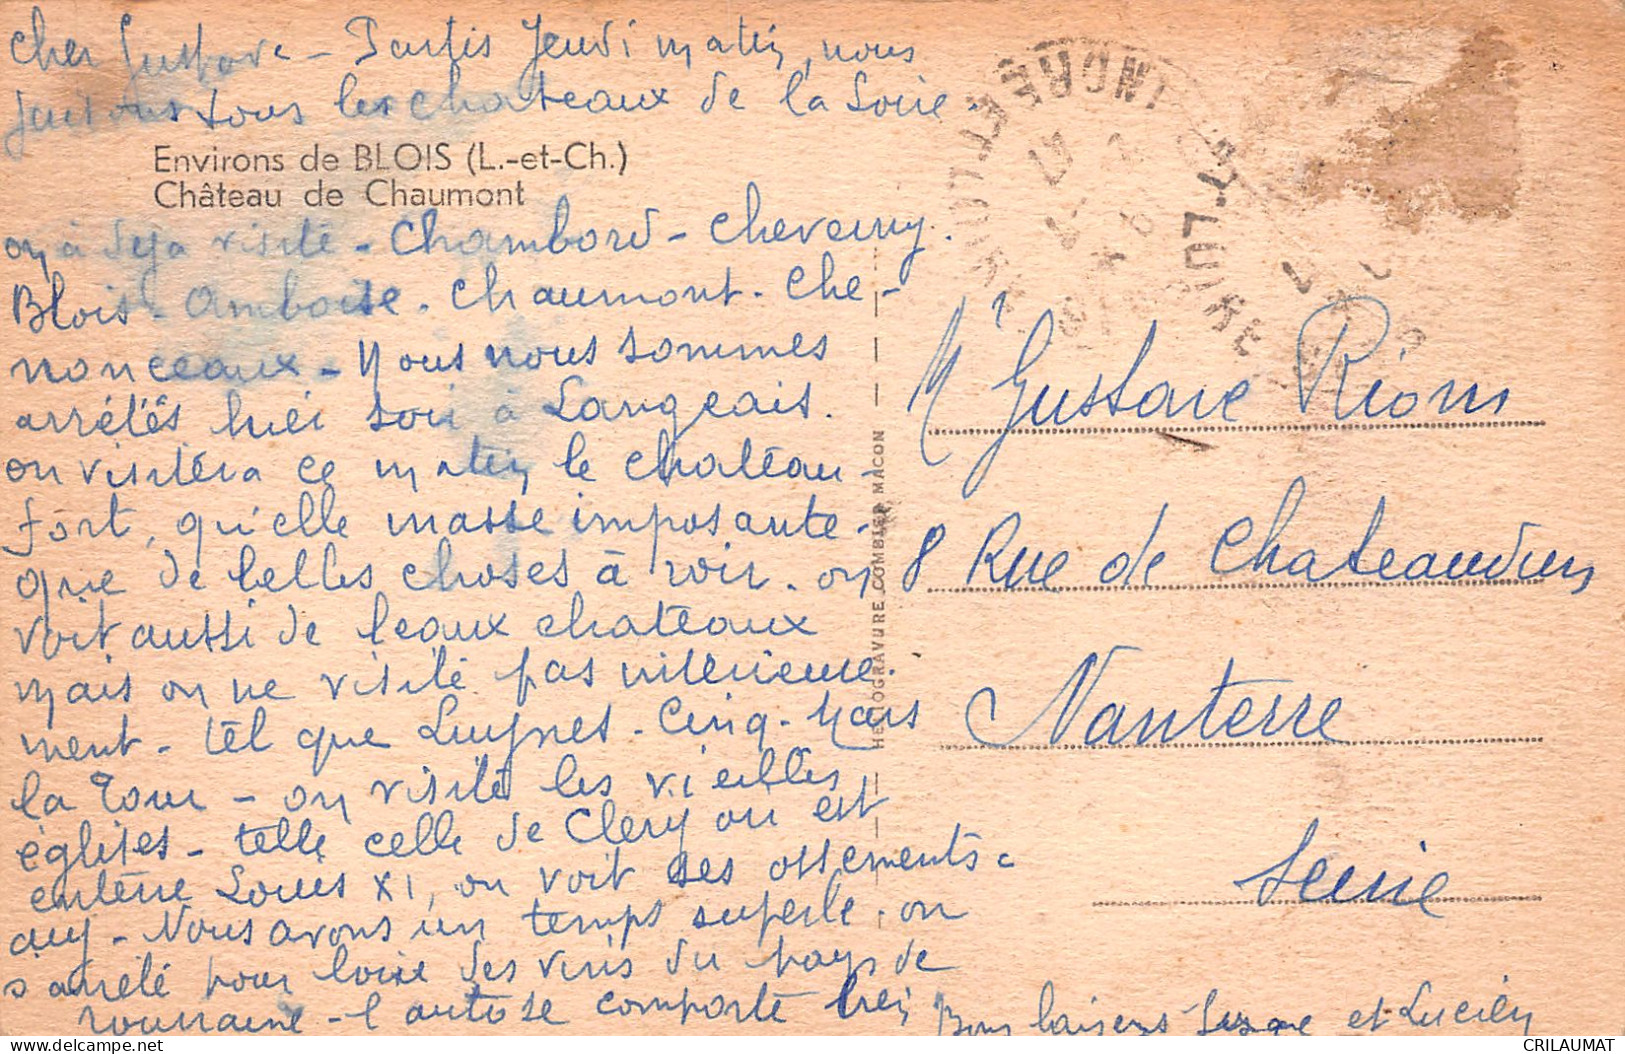 Cher Gustave - Partis Jeudi matin, nous
faisons tous les chateaux de la Loire -
Environs de BLOIS (L.-et-Ch.)
Château de Chaumont
on à deja visité - Chambord - Cheverny.
Blois - Amboise - Chaumont - Che-
nonceaux - Nous nous sommes
arrétés hiéi soir à Langeais.
on visitéra ce matin le chateau-
fort, qu'elle masse imposante -
que de belles choses à voir - on
voit aussi de beaux chateaux
mais on ne visité pas intérieure-
ment - tél que Luynes - Cinq-Mars
la Tour - on visité les vieilles
églises - telle celle de Clery ou est
entérré Louis XI, on voit ses ossements -
Nous avons un temps superbe - on
s'arrété pour boire des vins du pays de
Tourraine - l'auto se comporte bien
Bons baisers Suzane et Lucien
HELIOGRAVURE COMBIER MACON
INDRE-ET-LOIRE
ET-LOIRE
Mr Gustave Rioms
8 Rue de Chateaudun
Nanterre
Seine
CRILAUMAT